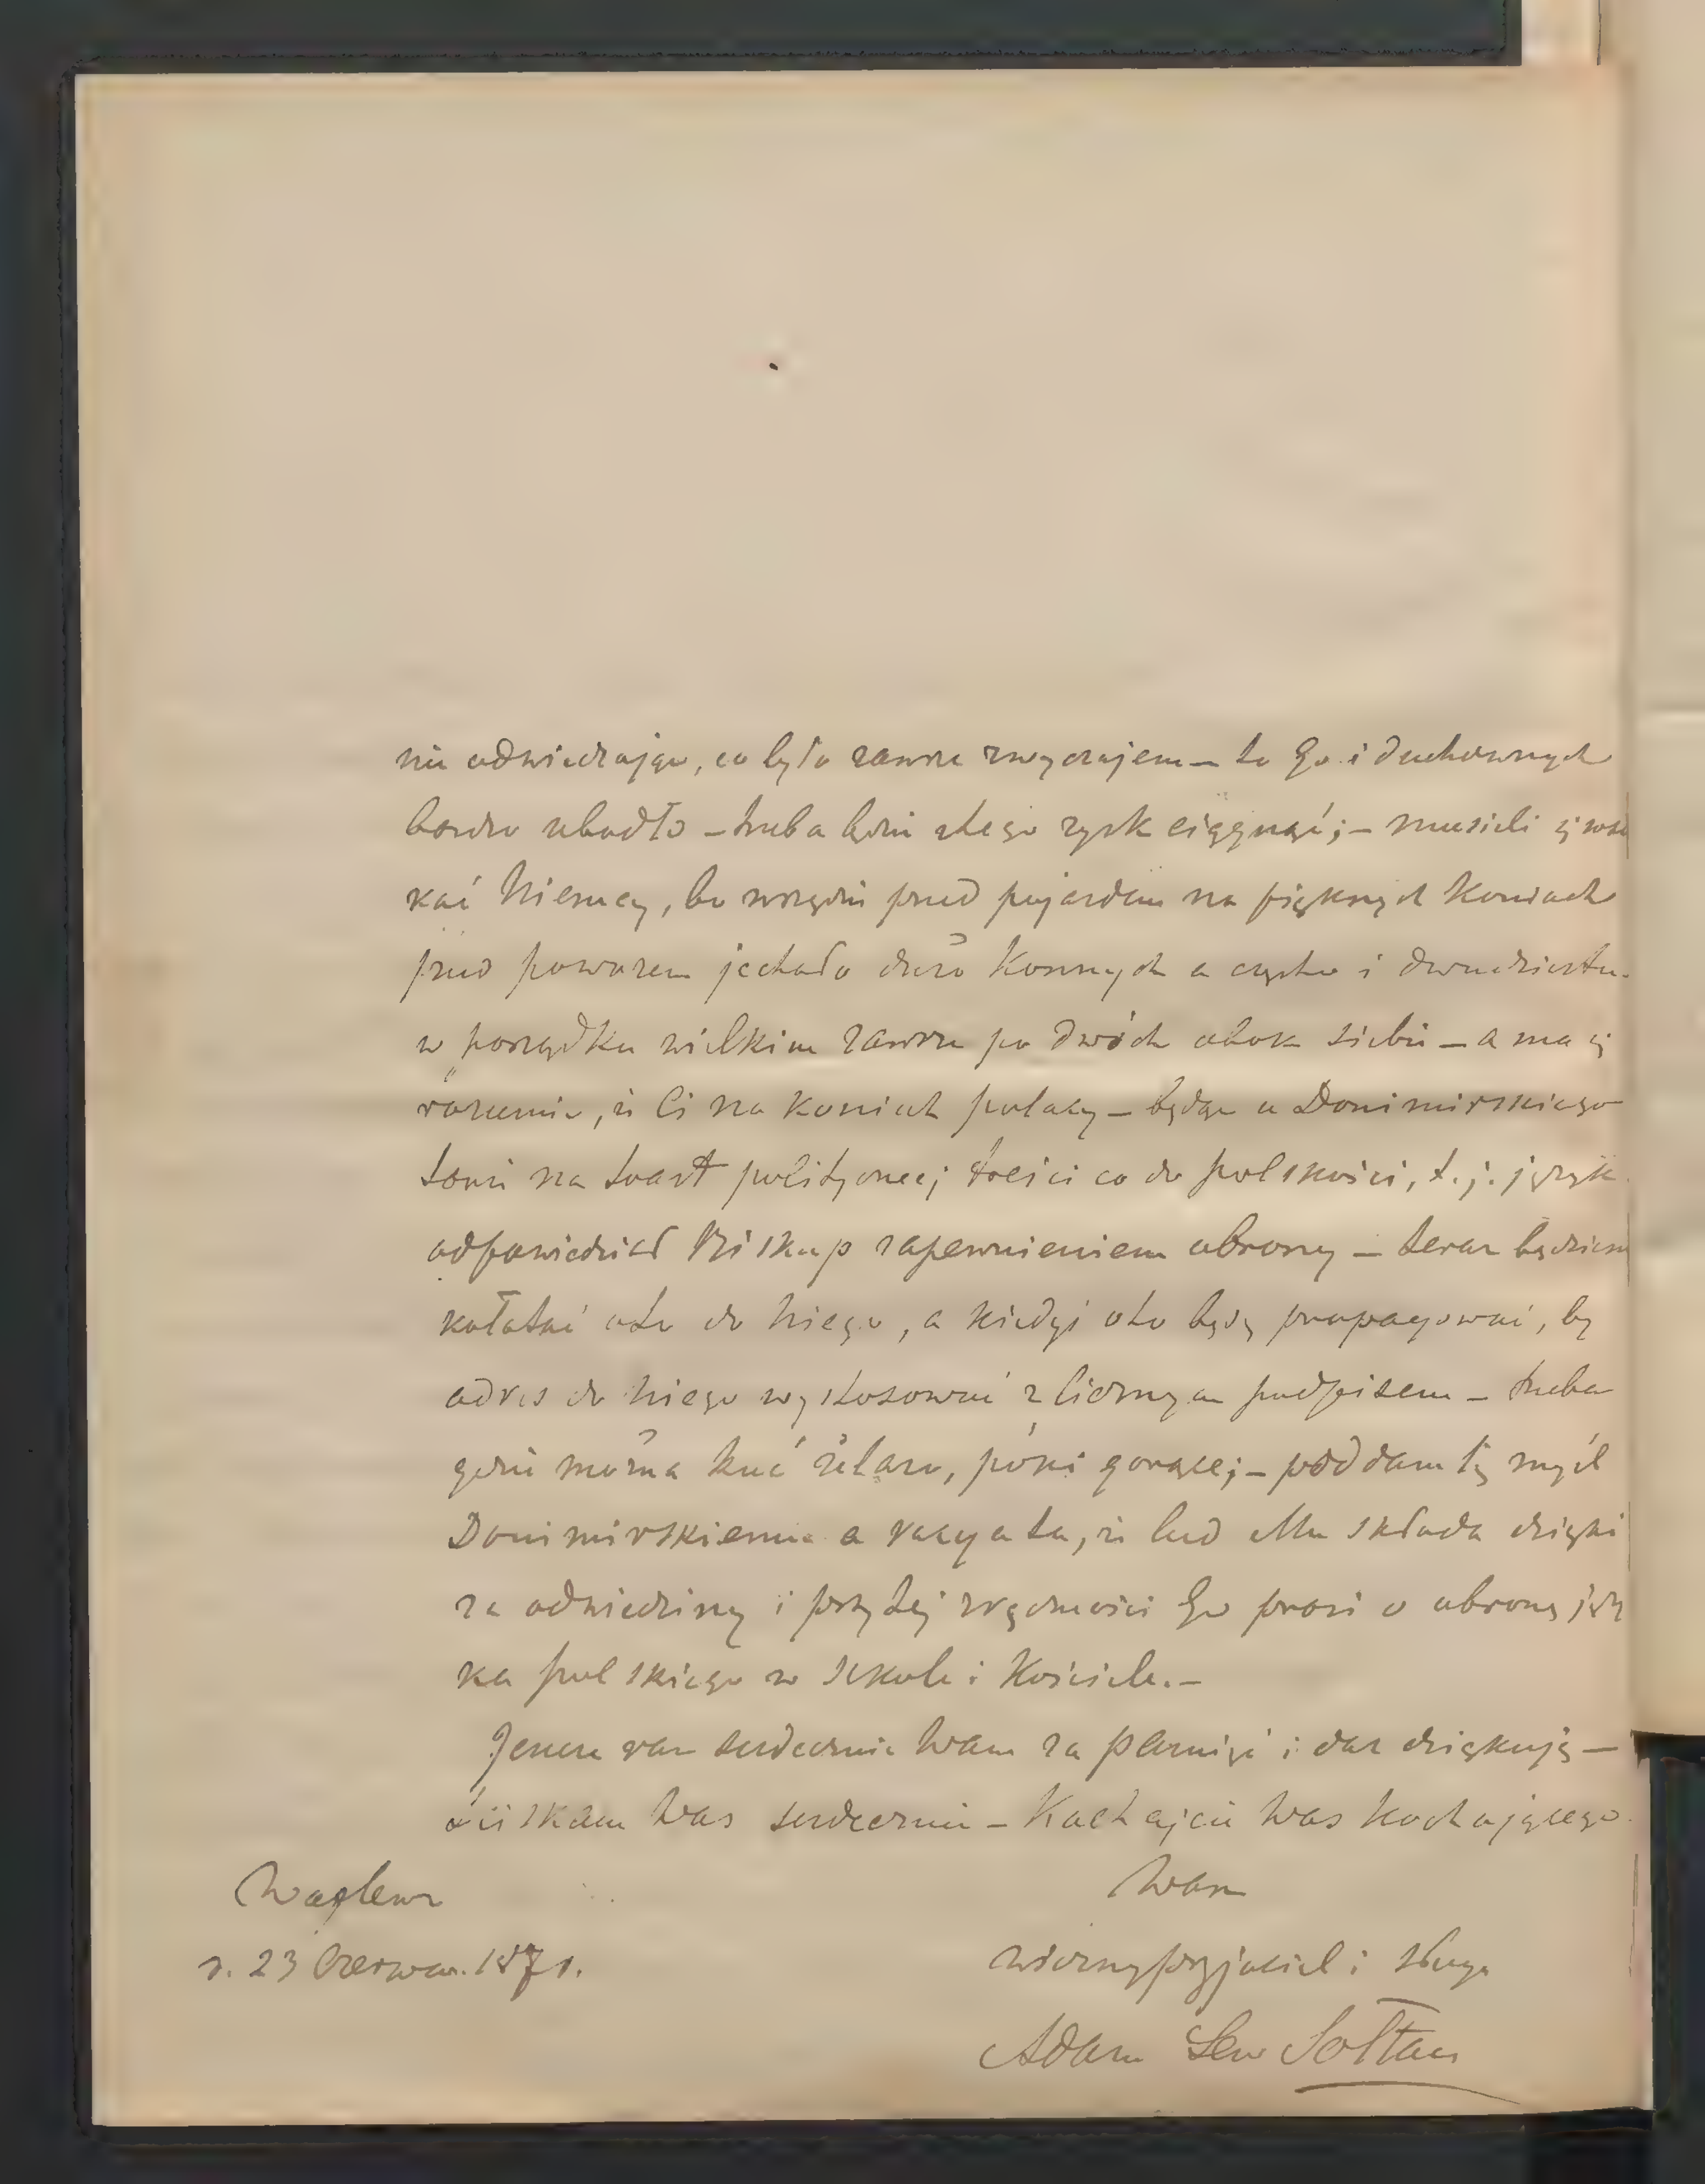 nie odwiedzając, co było zawsze zwyczajem – to Go i duchownych
bardzo ubodło – trzeba będzie z tego zysk ciągnąć; – musieli się
Niemcy, bo wszędzie przed pojazdem na pięknych koniach
przed powozem jechało dużo konnych a często i dwudziestu
w porządku wielkim zawsze po dwóch obok siebie – a ma się
rozumieć, iż Ci na koniach polacy – będąc u Donimirskiego
na toast politycznej treści co do polskości, t. j. język
odpowiedział Biskup zapewnieniem obrony – teraz będziem
kołatać oto do Niego, a kiedyś oto będę propagować, by
adres do Niego wystosować z licznym podpisem – trzeba
gdzie można kuć żelazo, póki gorące; – poddam tę myśl
Donimirskiemu a racya ta, iż lud Mu składa dzięki
za odwiedziny i przy tej zręczności Go prosi o obronę języ
ka polskiego w szkole i Kościele. –
Jeszcze raz serdecznie Wam za pamięć i dar dziękuję –
ściskam Was serdecznie – Kochajcie Was kochającego
Wasz
wierny przyjaciel i sługa
Adam Lew Sołtan
d. 23 Czerwca. 1871.